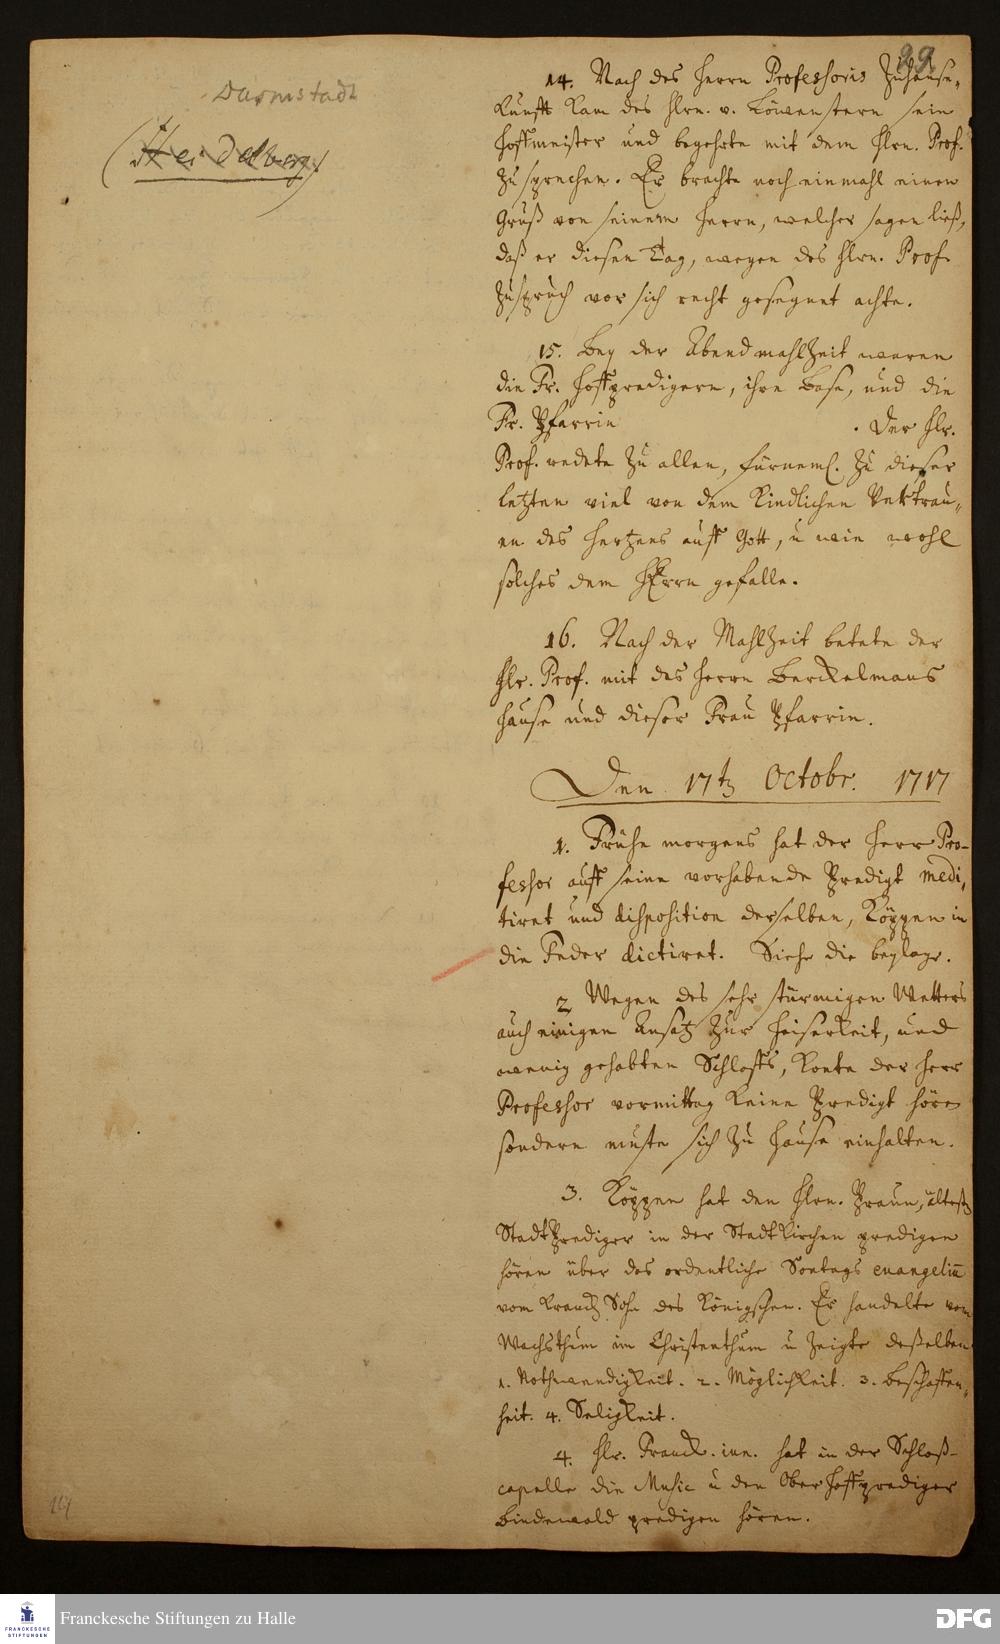 29.
Darmstadt
(Heidelberg)
14. Nach des Herrn Professoris Zuhause-
kunfft kam des Hrn. v. Löwenstern sein
Hoffmeister und begehrte mit dem Hrn. Prof.
zu sprechen. Er brachte noch einmahl einen
Gruß von seinem Herrn, welcher sagen ließ,
daß er diesen Tag, wegen des Hrn. Prof.
Zuspruch vor sich recht gesegnet achte.
15. Bey der Abendmahlzeit waren
die Fr. Hoffpredigern, ihre Base, und die
Fr. Pfarrin . Der Hr.
Prof. redete zu allen, fürneml. zu dieser
letzten viel von dem Kindlichen Vertrau-
en des Hertzens auff Gott, u wie wohl
solches dem HErrn gefalle.
16. Nach der Mahlzeit betete der
Hr. Prof. mit des Herrn Berckelmans
Hause und dieser Frau Pfarrin.
Den 17t Octobr. 1717
1. Frühe morgens hat der Herr Pro-
fessor auff seine vorhabende Predigt medi-
tiret und disposition derselben, Köppen in
die Feder dictiret. Siehe die beylage.
2 Wegen des sehr stürmigen Wetters
auch einigen Ansatz zur Heiserkeit, und
wenig gehabten Schlaffs, konte der Herr
Professor vormittag keine Predigt hören
sondern muste sich zu Hause einhalten.
3. Köppen hat den Hrn. Praun, ältest
StadtPrediger in der Stadtkirchen predigen
hören über das ordentliche Sontags evangeliū
vom kranck Sohn des Königschen. Er handelte vom
Wachsthum im Christenthum u zeigte deßelben
1. Nothwendigkeit. 2. Möglichkeit. 3. Beschaffen-
heit. 4. Seligkeit.
4. Hr. Franck. iun. hat in der Schloß-
capelle die Music u den Ober Hoffprediger
Bindewald predigen hören.
Franckesche Stiftungen zu Halle
FRANCKESCHE
STIFTUNGEN
DFG